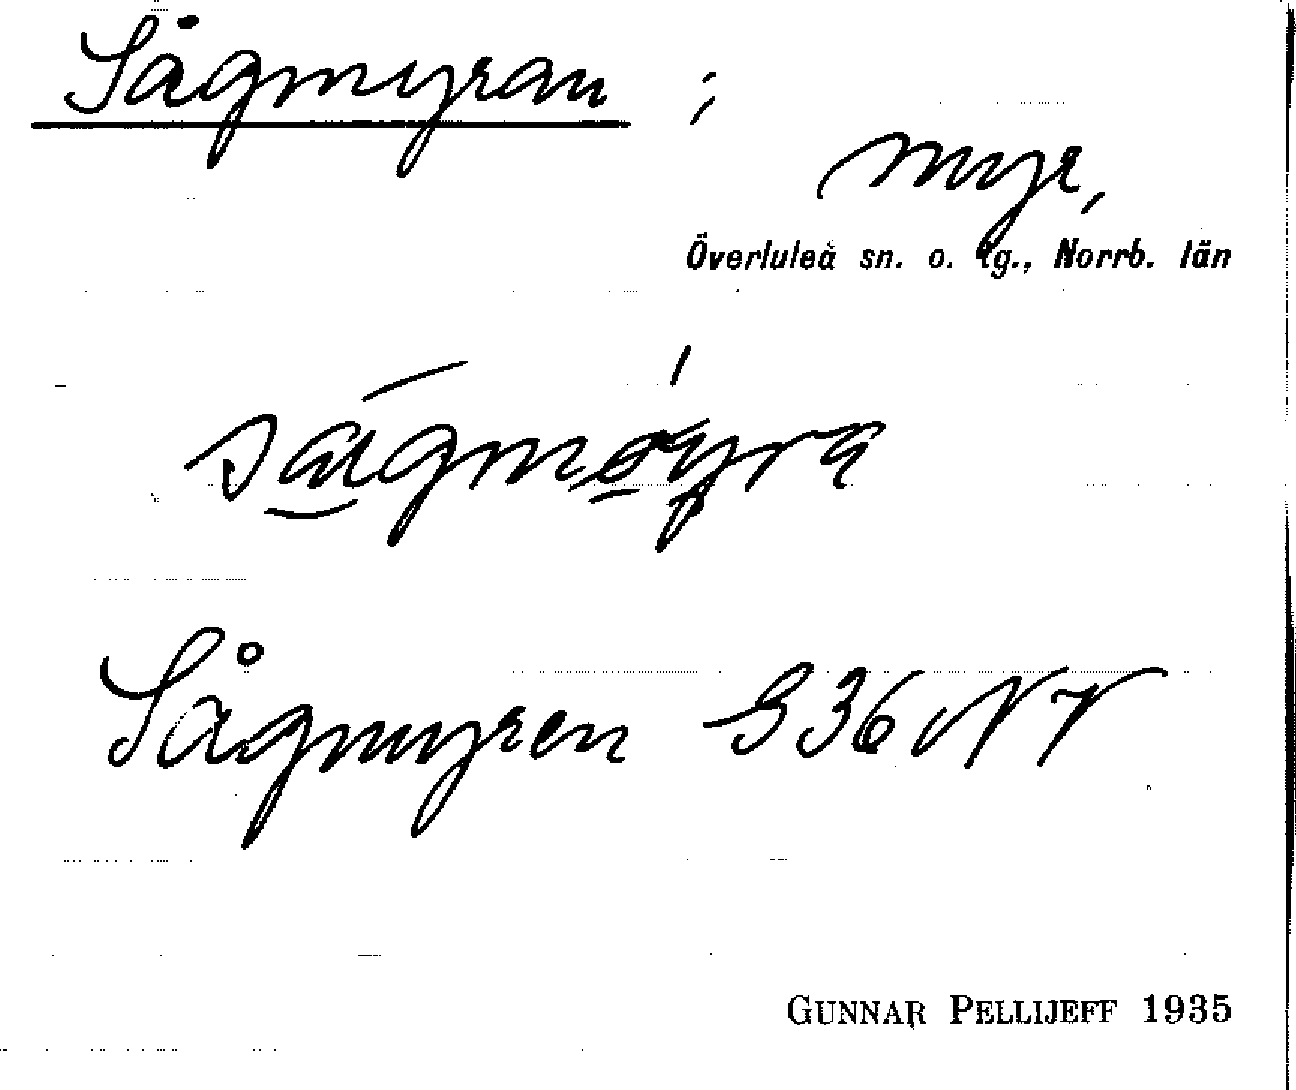 Sågmyran ;
myr,
Överluleå sn. o. tg., Norrb. län
Sågmyren S 36 NV
GUNNAR PELLIJEFF 1935